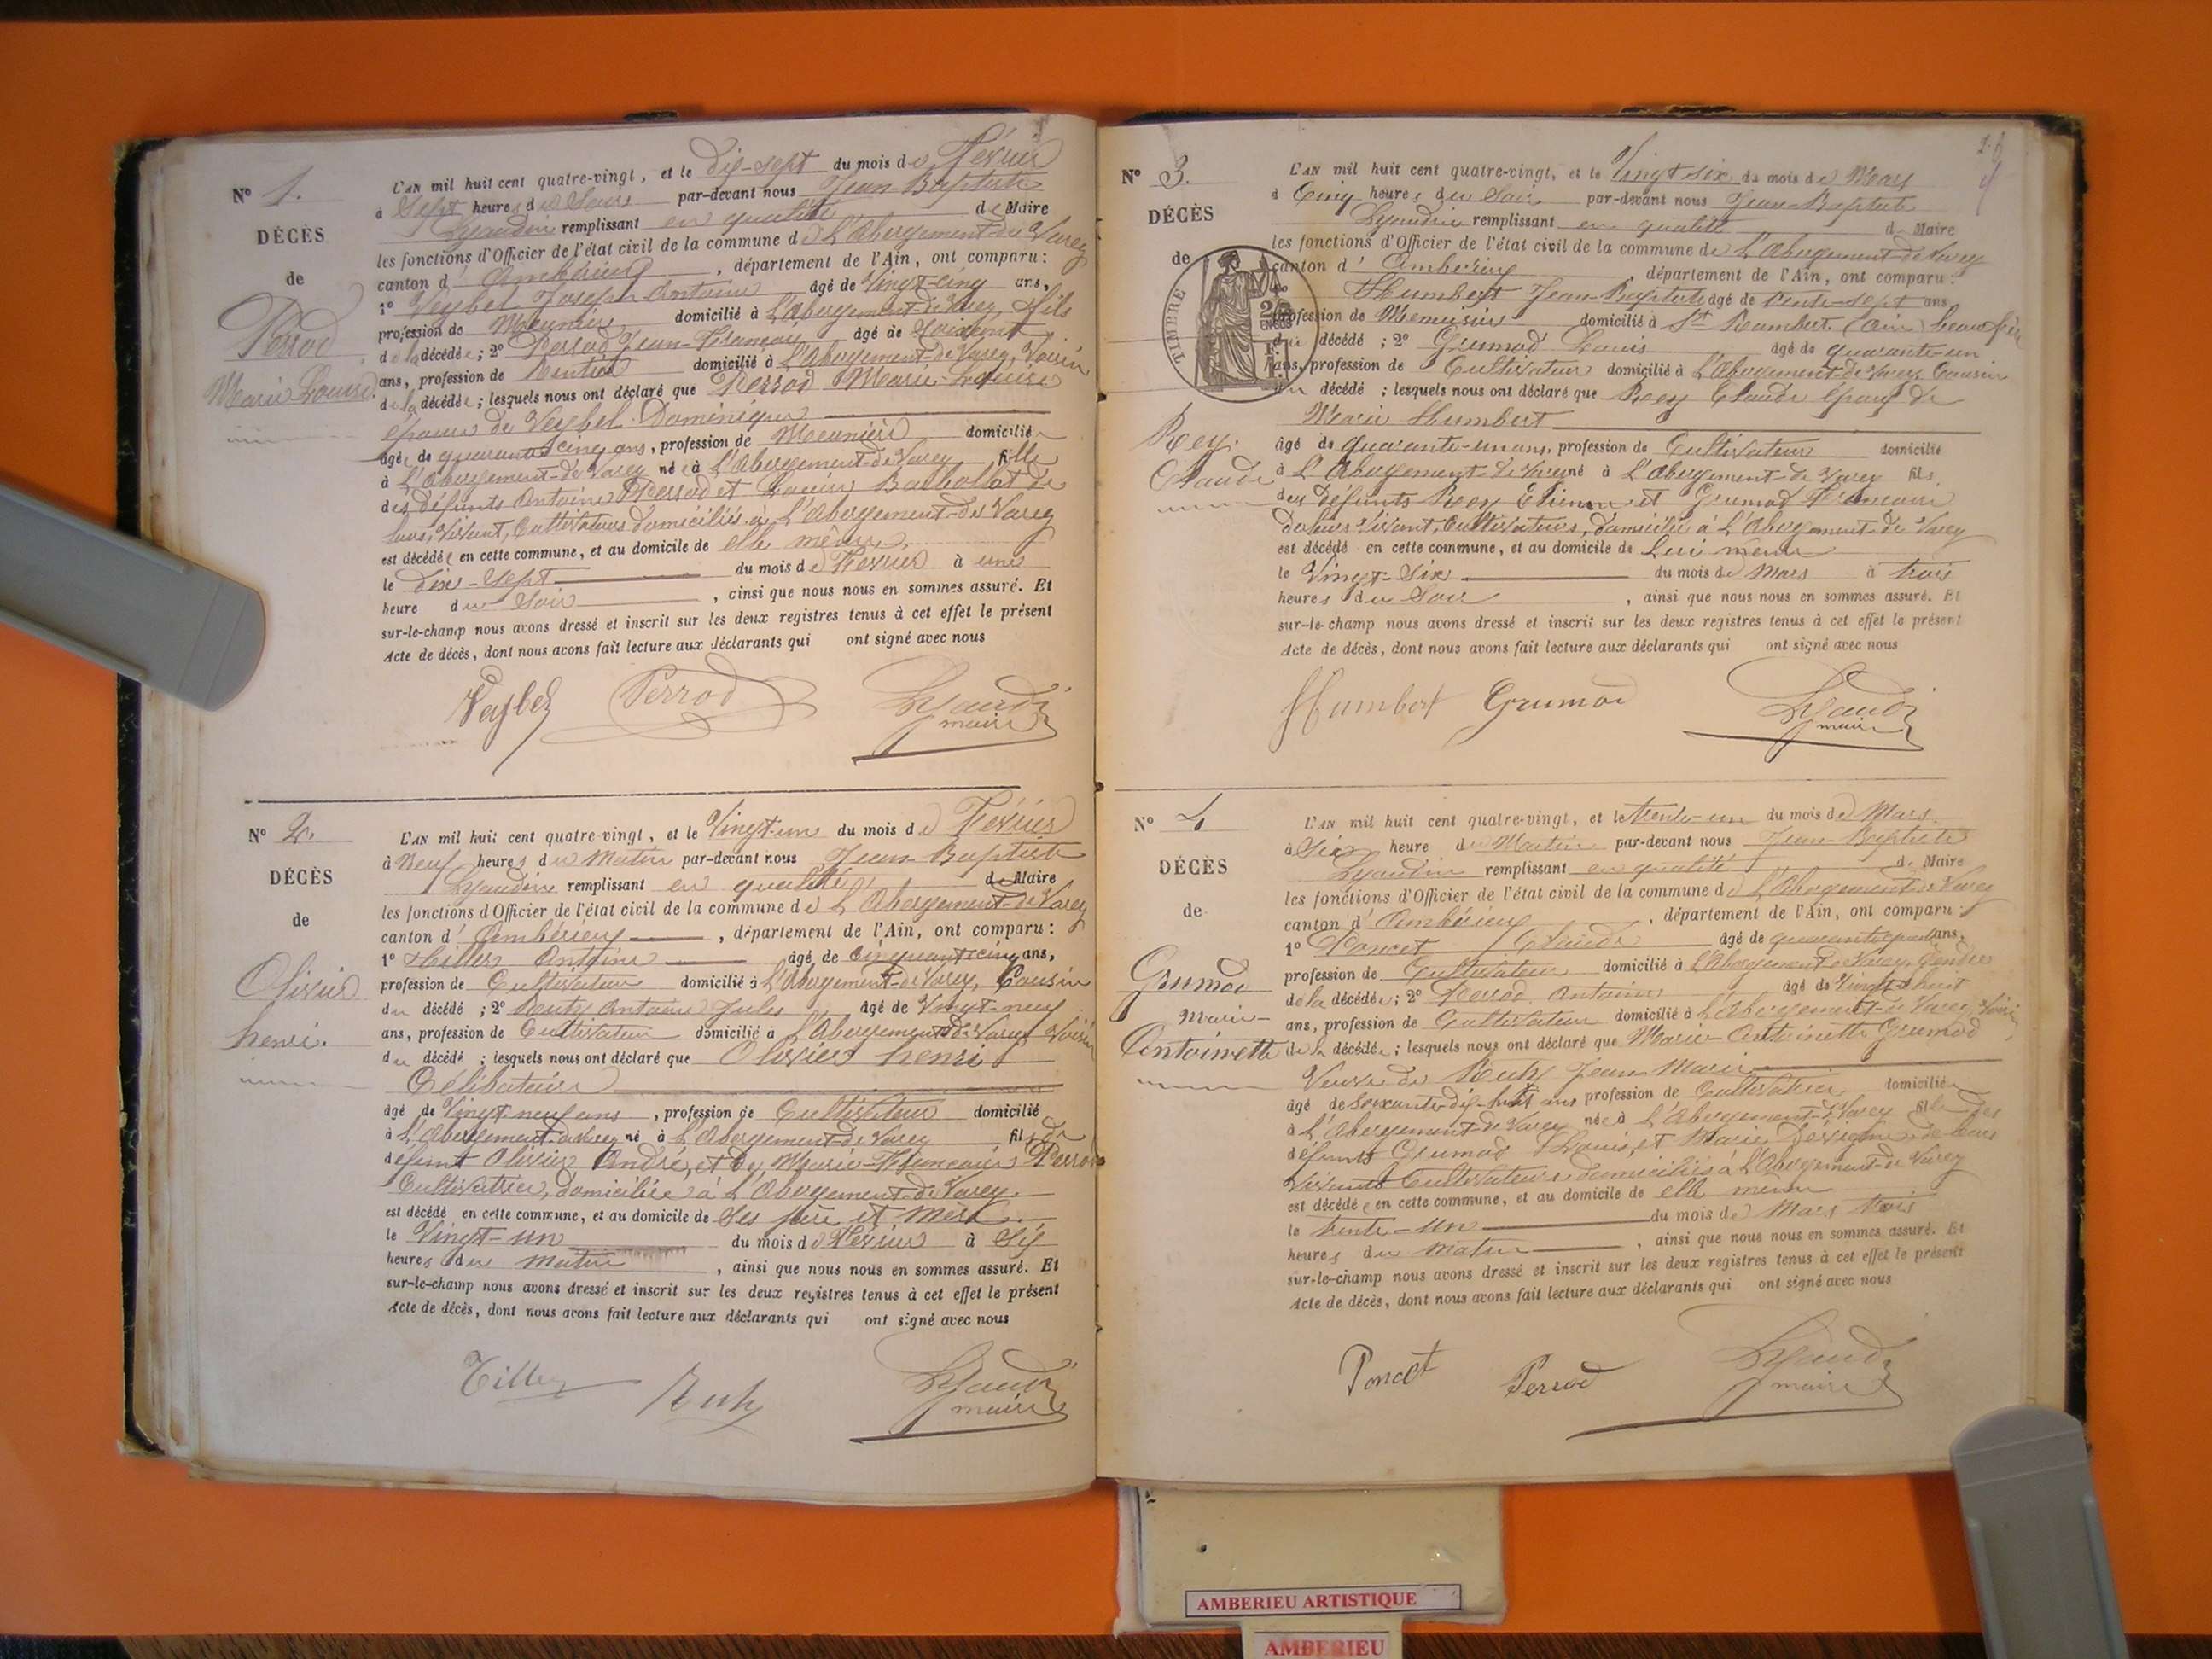 N° 1.
DÉCÈS
de
Perrod
Marie Louise.
L'AN mil huit cent quatre-vingt, et le Dix-sept du mois de Février
à Sept heures du Soir par-devant nous Jean Baptiste
Lyaudin remplissant en qualité de Maire
les fonctions d'Officier de l'état civil de la commune de L'Abergement-de Varey
canton d' Ambérieu, département de l'Ain, ont comparu:
1° Veybel Joseph Antoine âgé de Vingt-cinq ans,
profession de Meunier domicilié à L'Abergement-de Varey, fils
de la décédée; 2° Perrod Jean-François âgé de Soixante
ans, profession de Rentier domicilié à L'Abergement-de Varey, Voisin
de la décédée; lesquels nous ont déclaré que Perrod Marie-Louise
épouse de Veybel Dominique
âgée de quarante cinq ans, profession de Meunière domiciliée
à L'Abergement-de Varey née à L'Abergement-de Varey fille
des défunts Antoine Perrod et Louise de
leurs Vivant, Cultivateurs domiciliés à L'Abergement-de Varey
est décédée en cette commune, et au domicile de elle même
le Dix-Sept du mois de Février à une
heure du Soir, ainsi que nous nous en sommes assuré. Et
sur-le-champ nous avons dressé et inscrit sur les deux registres tenus à cet effet le présent
Acte de décès, dont nous avons fait lecture aux déclarants qui ont signé avec nous
Veybel Perrod Lyaudin
maire
N° 2.
DÉCÈS
de
Olivier
henri.
L'AN mil huit cent quatre-vingt, et le Vingt-un du mois de Février
à Neuf heures du Matin par-devant nous Jean Baptiste
Lyaudin remplissant en qualité de Maire
les fonctions d'Officier de l'état civil de la commune de L'Abergement-de Varey
canton d' Ambérieu, département de l'Ain, ont comparu:
1° Antoine âgé de Cinquante cinq ans,
profession de Cultivateur domicilié à L'Abergement-de Varey, Cousin
du décédé; 2° Ruty Antoine Jules âgé de Vingt-neuf
ans, profession de Cultivateur domicilié à L'Abergement-de Varey Voisin
du décédé; lesquels nous ont déclaré que Olivier henri
Célibataire
âgé de Vingt-neuf ans, profession de Cultivateur domicilié
à L'Abergement-de Varey né à L'Abergement-de Varey fils de
défunt Olivier André, et de Marie-Françoise Perrod
Cultivatrice, domiciliée à L'Abergement-de Varey
est décédé en cette commune, et au domicile de Ses père et mère
le Vingt-un du mois de Février à Six
heures du matin, ainsi que nous nous en sommes assuré. Et
sur-le-champ nous avons dressé et inscrit sur les deux registres tenus à cet effet le présent
Acte de décès, dont nous avons fait lecture aux déclarants qui ont signé avec nous
Ruty Lyaudin
maire
N° 3.
DÉCÈS
de
TIMBRE
Rey.
Claude
L'AN mil huit cent quatre-vingt, et le Vingt six du mois de Mars
à Cinq heures du Soir par-devant nous Jean-Baptiste
Lyaudin remplissant en qualité de Maire
les fonctions d'Officier de l'état civil de la commune de L'Abergement-de Varey
canton d' Ambérieu, département de l'Ain, ont comparu:
Humbert Jean-Baptiste âgé de trente-sept ans
profession de Menuisier domicilié à St Rambert (Ain) beau frère
du décédé; 2° Grumod Louis âgé de quarante-un
ans, profession de Cultivateur domicilié à L'Abergement-de Varey, Cousin
du décédé; lesquels nous ont déclaré que Rey Claude époux de
Marie Humbert
âgé de quarante-un ans, profession de Cultivateur domicilié
à L'Abergement-de Varey né à L'Abergement-de Varey fils
des défunts Rey Etienne et Grumod Françoise
de leurs Vivant, Cultivateurs, domiciliés à L'Abergement-de Varey
est décédé en cette commune, et au domicile de Lui même
le Vingt-Six du mois de Mars à trois
heures du Soir, ainsi que nous nous en sommes assuré. Et
sur-le-champ nous avons dressé et inscrit sur les deux registres tenus à cet effet le présent
Acte de décès, dont nous avons fait lecture aux déclarants qui ont signé avec nous
Humbert Grumod Lyaudin
maire
N° 4
DÉCÈS
de
Grumod
Marie-
Antoinette
L'AN mil huit cent quatre-vingt, et le trente-un du mois de Mars
à Six heure du Matin par-devant nous Jean-Baptiste
Lyaudin remplissant en qualité de Maire
les fonctions d'Officier de l'état civil de la commune de L'Abergement-de Varey
canton d' Ambérieu, département de l'Ain, ont comparu:
1° Poncet Claude âgé de quarante quatre ans,
profession de Cultivateur domicilié à L'Abergement-de Varey, Gendre
de la décédée; 2° Perrod Antoine âgé de Vingt-huit
ans, profession de Cultivateur domicilié à L'Abergement-de Varey Voisin
de la décédée; lesquels nous ont déclaré que Marie-Antoinette Grumod
Veuve de Ruty Jean Marie
âgé de soixante-dix-huit ans profession de Cultivatrice domiciliée
à L'Abergement-de Varey née à L'Abergement-de Varey fille des
défunts Grumod Louis, et Marie de leurs
Vivants Cultivateurs, domiciliés à L'Abergement-de Varey
est décédée en cette commune, et au domicile de elle même
le trente-un du mois de Mars trois
heures du matin, ainsi que nous nous en sommes assuré. Et
sur-le-champ nous avons dressé et inscrit sur les deux registres tenus à cet effet le présent
Acte de décès, dont nous avons fait lecture aux déclarants qui ont signé avec nous
Poncet Perrod Lyaudin
maire
AMBERIEU ARTISTIQUE
AMBERIEU